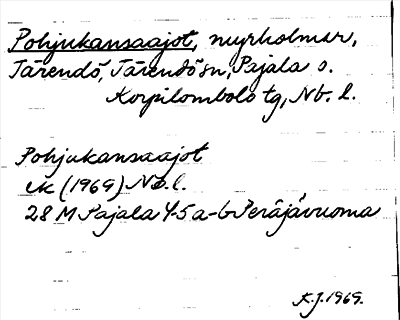 Pohjukansaajot, myrholmar,
Tärendö, Tärendö sn, Pajala s.
Korpilombolo tg, Nb. l.
Pohjukansaajot
ek (1969) Nb. l.
28 M Pajala 4-5 a-b Peräjävuoma
K.J. 1969.